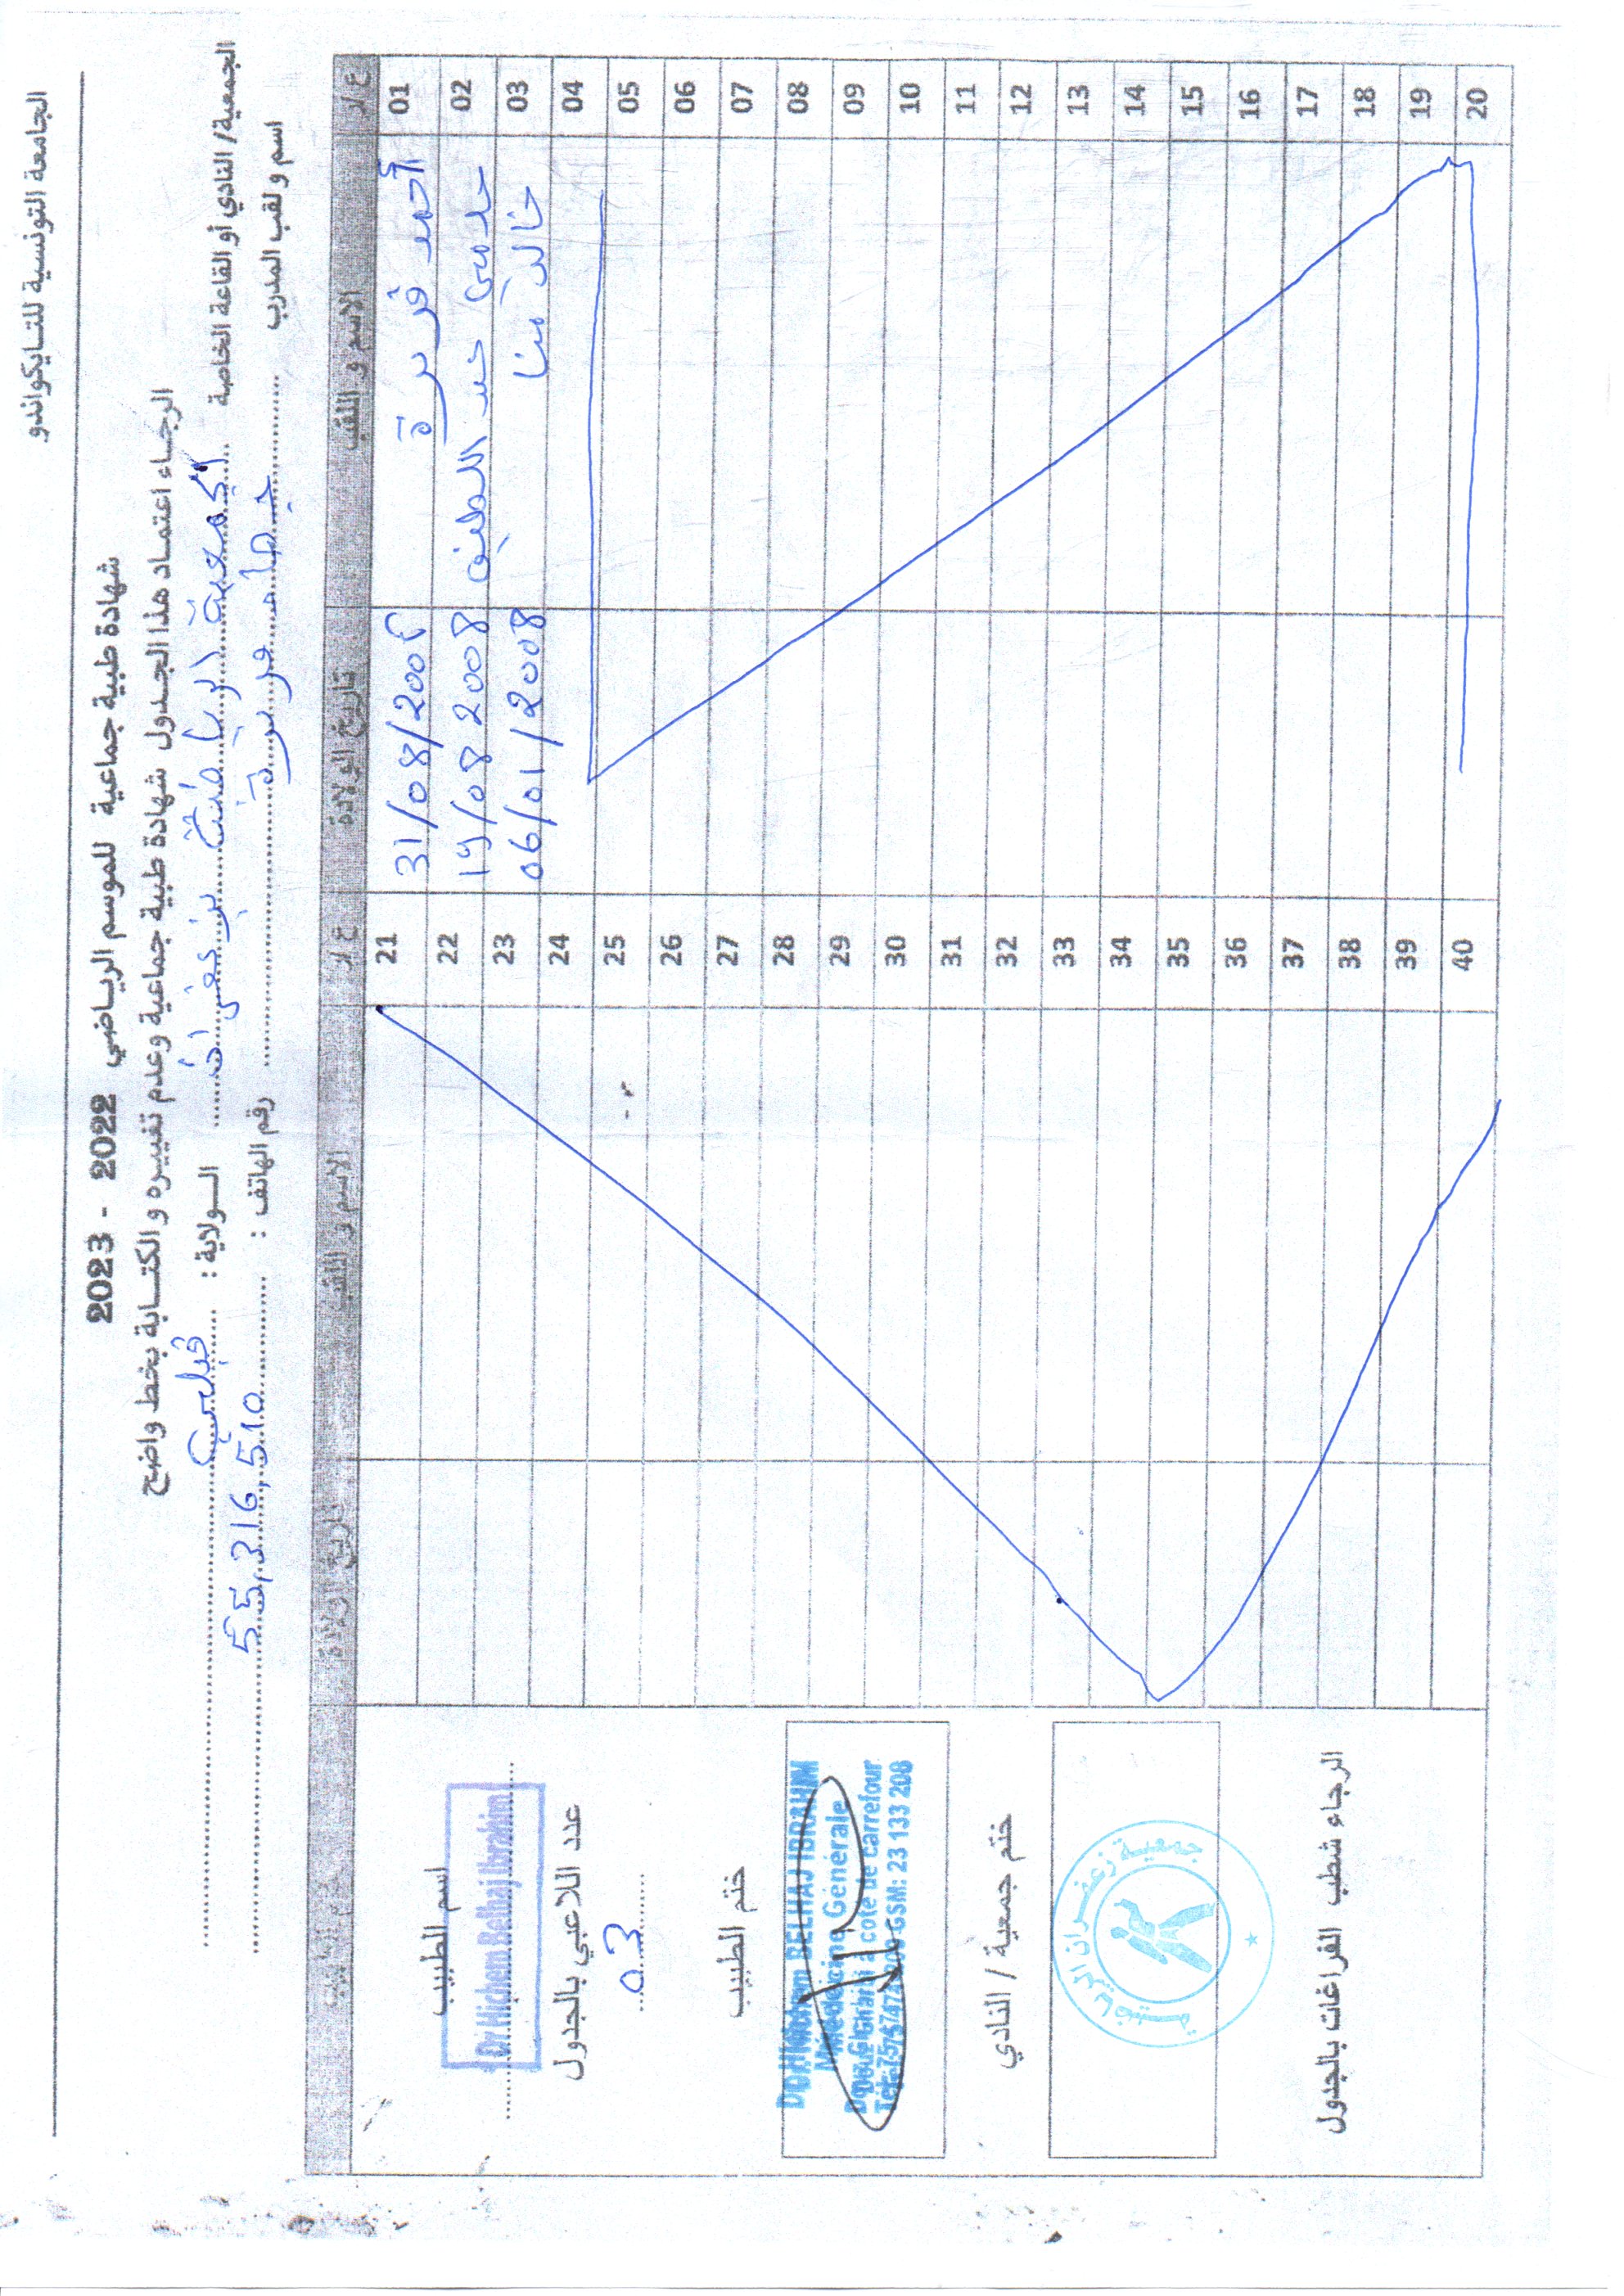 الجامعة التونسية للتايكواندو
شهادة طبية جماعية للموسم الرياضي 2022 - 2023
الرجاء اعتماد هذا الجدول شهادة طبية جماعية وعدم تغييره والكتابة بخط واضح
الجمعية/ النادي أو القاعة الخاصة الجمعية الرياضية بزعفران الولاية : قبلي
اسم ولقب المدرب رقم الهاتف : 55,316,510
ع/ر الاسم و اللقب تاريخ الولادة ع/ر الاسم و اللقب تاريخ الولادة
01 أحمد 31/08/200 21
02 عبد اللطيف 19/08 2008 22
03 خالد 06/01/2008 23
04 24
05 25
06 26
07 27
08 28
09 29
10 30
11 31
12 32
13 33
14 34
15 35
16 36
17 37
18 38
19 39
20 40
اسم الطبيب
Dr Hichem Belhaj Ibrahim
عدد اللاعبي بالجدول
03
ختم الطبيب
Dr Hichem BELHAJ IBRAHIM
Médecine Générale
Douz Gharbi à côté de carrefour
GSM: 23 133 208
ختم جمعية / النادي
جمعية زعفران الرياضية
الرجاء شطب الفراغات بالجدول